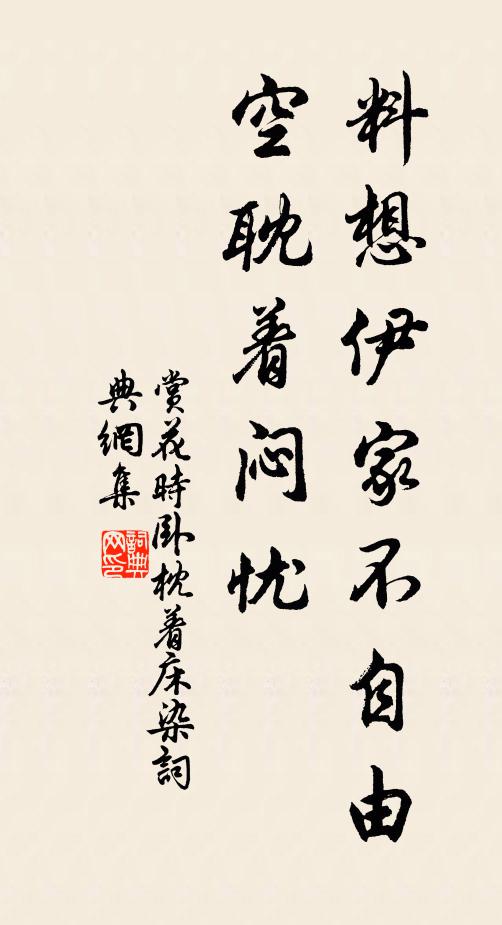 料想伊家不自由
空耽着闷忧
賞花時卧枕着床染詞
典網集
詞典网印